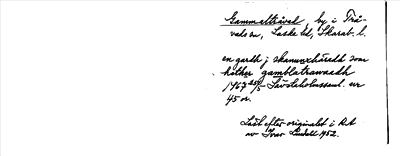 Gammeltråvel, by i Trå-
vads sn, Laske hd, Skarab. l.
en gardh j skanunxhäradh som
hether gamblatrawadh
1467 25/5 Sävdeholmssaml. nr
45 or.
Läst efter originalet i RA
av Ivar Lundell 1952.